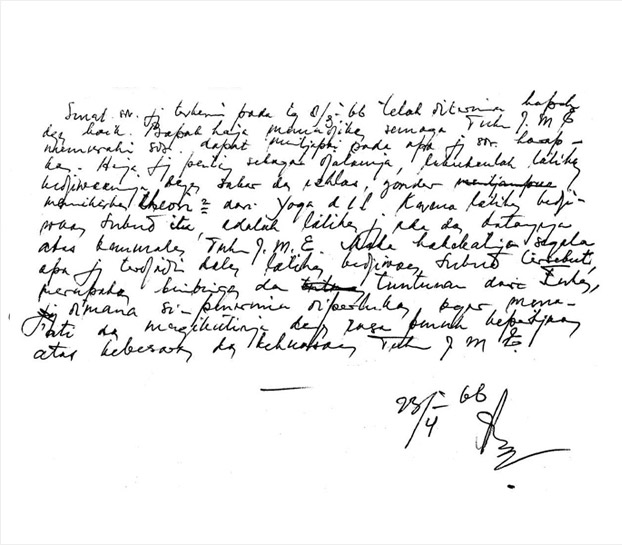 Surat sdr. jg terkirim pada tg 8/3-66 telah diterima bapak
dg baik. Bapak hanja memudjikan semoga Tuhan J.M.E
sdr. dapat pada apa jg sdr. harap-
kan. Hanja jg penting sebagai djalannja, lakukanlah latihan
kedjiwaannja dengan sabar da ichlas, zonder
memikirkan theori2 dari Yoga dll. Karena latihan kedji-
waan Subud itu, adalah latihan jg ada da datangnja
atas kemurahan Tuhan J.M.E. Maka hakekatnja segala
apa jg terdjadi dalam latihan kedjiwaan Subud tersebut,
merupakan bimbingan da tuntunan dari Tuhan,
jg dimana si-penerima diperlukan agar mena-
ati da mengikutinja dg rasa penuh kepertjajaan
atas kebesaran da kekuasaan Tuhan J M E.
23/4-66